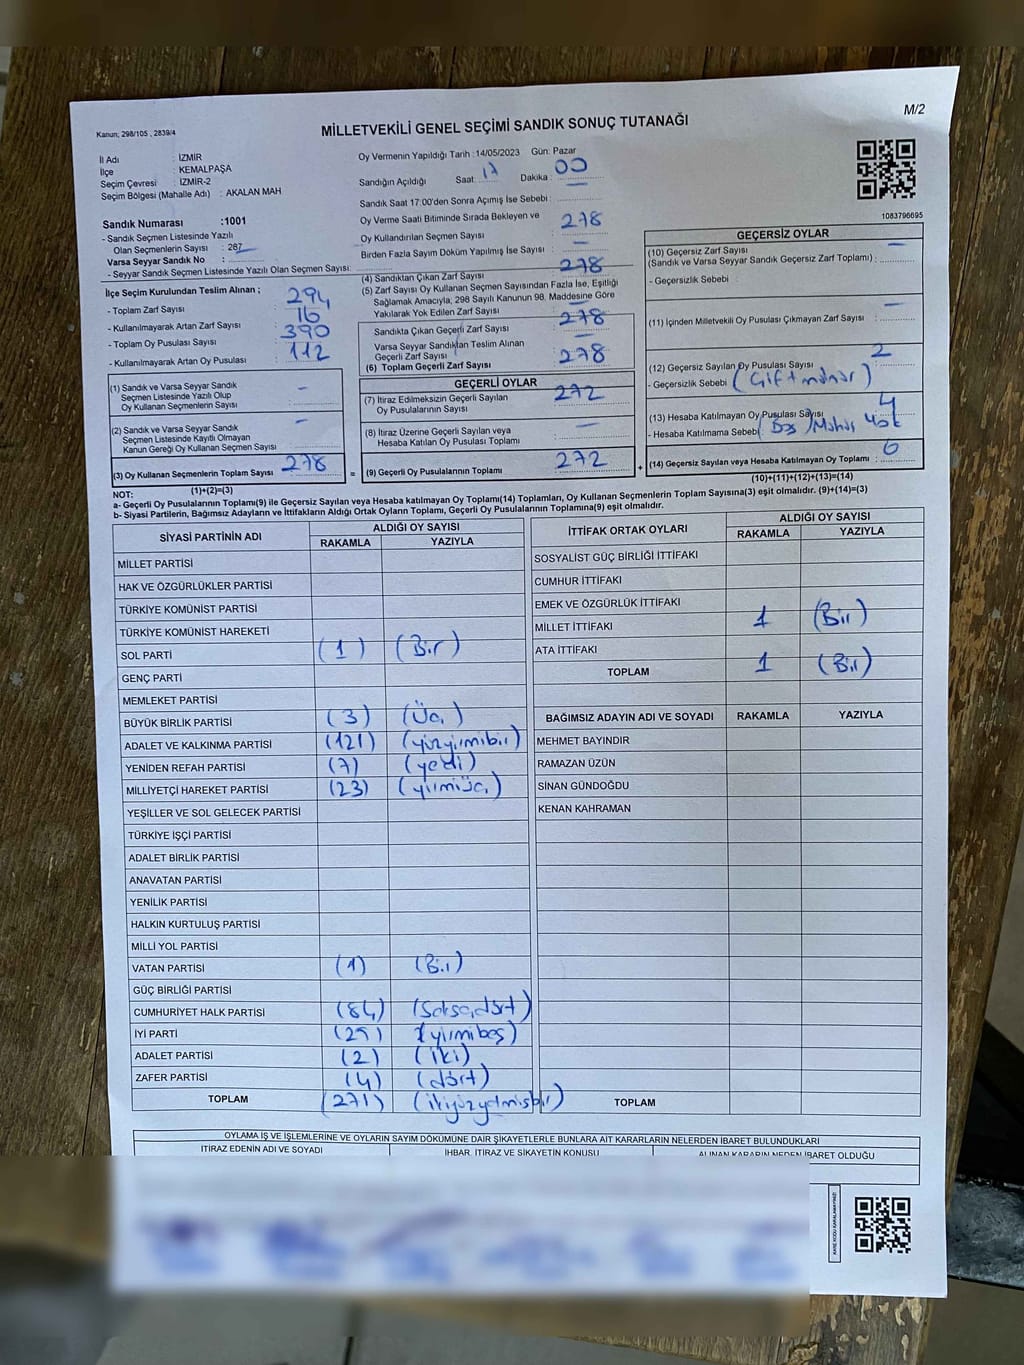 M/2
Kanun; 298/105 , 2839/4
MİLLETVEKİLİ GENEL SEÇİMİ SANDIK SONUÇ TUTANAĞI
İl Adı : İZMİR
İlçe : KEMALPAŞA
Seçim Çevresi : İZMİR-2
Seçim Bölgesi (Mahalle Adı) : AKALAN MAH
Sandık Numarası :1001
- Sandık Seçmen Listesinde Yazılı
Olan Seçmenlerin Sayısı : 287
Varsa Seyyar Sandık No :
- Seyyar Sandık Seçmen Listesinde Yazılı Olan Seçmen Sayısı:
Oy Vermenin Yapıldığı Tarih : 14/05/2023 Gün: Pazar
Sandığın Açıldığı Saat: 17 Dakika : 00
Sandık Saat 17:00'den Sonra Açımış İse Sebebi :
Oy Verme Saati Bitiminde Sırada Bekleyen ve
Oy Kullandırılan Seçmen Sayısı : 278
Birden Fazla Sayım Döküm Yapılmış İse Sayısı : —
1083796695
İlçe Seçim Kurulundan Teslim Alınan ;
- Toplam Zarf Sayısı : 294
- Kullanılmayarak Artan Zarf Sayısı : 16
- Toplam Oy Pusulası Sayısı : 390
- Kullanılmayarak Artan Oy Pusulası : 112
(1) Sandık ve Varsa Seyyar Sandık
Seçmen Listesinde Yazılı Olup
Oy Kullanan Seçmenlerin Sayısı : —
(2) Sandık ve Varsa Seyyar Sandık
Seçmen Listesinde Kayıtlı Olmayan
Kanun Gereği Oy Kullanan Seçmen Sayısı : —
(3) Oy Kullanan Seçmenlerin Toplam Sayısı : 278
(1)+(2)=(3)
(4) Sandıktan Çıkan Zarf Sayısı : 278
(5) Zarf Sayısı Oy Kullanan Seçmen Sayısından Fazla İse, Eşitliği
Sağlamak Amacıyla, 298 Sayılı Kanunun 98. Maddesine Göre
Yakılarak Yok Edilen Zarf Sayısı : —
Sandıkta Çıkan Geçerli Zarf Sayısı : 278
Varsa Seyyar Sandıktan Teslim Alınan
Geçerli Zarf Sayısı : —
(6) Toplam Geçerli Zarf Sayısı : 278
GEÇERLİ OYLAR
(7) İtiraz Edilmeksizin Geçerli Sayılan
Oy Pusulalarının Sayısı : 272
(8) İtiraz Üzerine Geçerli Sayılan veya
Hesaba Katılan Oy Pusulası Toplamı : —
= (9) Geçerli Oy Pusulalarının Toplamı : 272
GEÇERSİZ OYLAR
(10) Geçersiz Zarf Sayısı
(Sandık ve Varsa Seyyar Sandık Geçersiz Zarf Toplamı) : —
- Geçersizlik Sebebi :
(11) İçinden Milletvekili Oy Pusulası Çıkmayan Zarf Sayısı : —
(12) Geçersiz Sayılan Oy Pusulası Sayısı : 2
- Geçersizlik Sebebi (Çift mühür)
(13) Hesaba Katılmayan Oy Pusulası Sayısı : 4
- Hesaba Katılmama Sebebi (Boş) Mühür Yok
+ (14) Geçersiz Sayılan veya Hesaba Katılmayan Oy Toplamı : 6
(10)+(11)+(12)+(13)=(14)
NOT:
a- Geçerli Oy Pusulalarının Toplamı(9) ile Geçersiz Sayılan veya Hesaba katılmayan Oy Toplamı(14) Toplamları, Oy Kullanan Seçmenlerin Toplam Sayısına(3) eşit olmalıdır. (9)+(14)=(3)
b- Siyasi Partilerin, Bağımsız Adayların ve İttifakların Aldığı Ortak Oyların Toplamı, Geçerli Oy Pusulalarının Toplamına(9) eşit olmalıdır.
SİYASİ PARTİNİN ADI ALDIĞI OY SAYISI
RAKAMLA YAZIYLA
MİLLET PARTİSİ
HAK VE ÖZGÜRLÜKLER PARTİSİ
TÜRKİYE KOMÜNİST PARTİSİ
TÜRKİYE KOMÜNİST HAREKETİ
SOL PARTİ (1) (Bir)
GENÇ PARTİ
MEMLEKET PARTİSİ
BÜYÜK BİRLİK PARTİSİ (3) (Üç)
ADALET VE KALKINMA PARTİSİ (121) (yüzyirmibir)
YENİDEN REFAH PARTİSİ (7) (yedi)
MİLLİYETÇİ HAREKET PARTİSİ (23) (yirmiüç)
YEŞİLLER VE SOL GELECEK PARTİSİ
TÜRKİYE İŞÇİ PARTİSİ
ADALET BİRLİK PARTİSİ
ANAVATAN PARTİSİ
YENİLİK PARTİSİ
HALKIN KURTULUŞ PARTİSİ
MİLLİ YOL PARTİSİ
VATAN PARTİSİ (1) (Bir)
GÜÇ BİRLİĞİ PARTİSİ
CUMHURİYET HALK PARTİSİ (84) (Seksendört)
İYİ PARTİ (25) (yirmibeş)
ADALET PARTİSİ (2) (iki)
ZAFER PARTİSİ (4) (dört)
TOPLAM (271) (ikiyüzyetmişbir)
İTTİFAK ORTAK OYLARI ALDIĞI OY SAYISI
RAKAMLA YAZIYLA
SOSYALİST GÜÇ BİRLİĞİ İTTİFAKI
CUMHUR İTTİFAKI
EMEK VE ÖZGÜRLÜK İTTİFAKI
MİLLET İTTİFAKI 1 (Bir)
ATA İTTİFAKI
TOPLAM 1 (Bir)
BAĞIMSIZ ADAYIN ADI VE SOYADI RAKAMLA YAZIYLA
MEHMET BAYINDIR
RAMAZAN ÜZÜN
SİNAN GÜNDOĞDU
KENAN KAHRAMAN
TOPLAM
OYLAMA İŞ VE İŞLEMLERİNE VE OYLARIN SAYIM DÖKÜMÜNE DAİR ŞİKAYETLERLE BUNLARA AİT KARARLARIN NELERDEN İBARET BULUNDUKLARI
İTİRAZ EDENİN ADI VE SOYADI İHBAR, İTİRAZ VE ŞİKAYETİN KONUSU ALINAN KARARIN NEDEN İBARET OLDUĞU